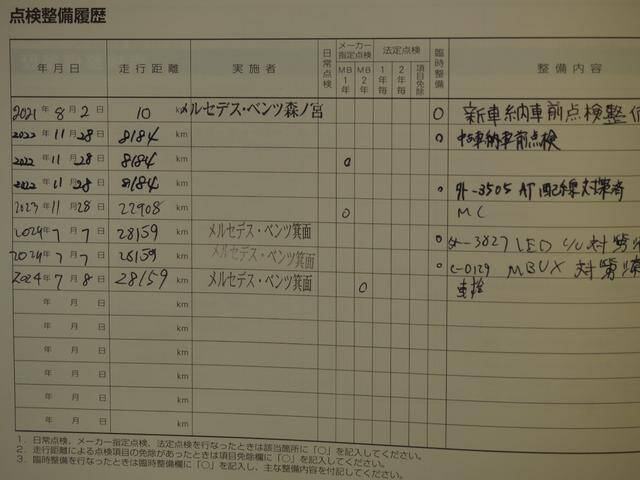 点検整備履歴
年月日 走行距離 実施者 日常点検 メーカー指定点検 MB1年 MB2年 法定点検 1年毎 2年毎 項目免除 臨時整備 整備内容
2021年 8月 2日 10 km メルセデス・ベンツ森ノ宮 ○ 新車納車前点検整備
2022年 11月 28日 8184 km ○ 中古車納車前点検
2022年 11月 28日 8184 km ○
2022年 11月 28日 8184 km ○ 外-3505 AT配線対策済
2023年 11月 28日 22908 km ○ MC
2024年 7月 7日 28159 km メルセデス・ベンツ箕面 ○ 外-3827 LED C/U 対策
2024年 7月 7日 28159 km メルセデス・ベンツ箕面 ○ C-0129 MBUX 対策
2024年 7月 8日 28159 km メルセデス・ベンツ箕面 ○ 車検
年 月 日 km
年 月 日 km
年 月 日 km
年 月 日 km
年 月 日 km
年 月 日 km
1. 日常点検、メーカー指定点検、法定点検を行なったときは該当箇所に「○」を記入してください。
2. 走行距離による点検項目の免除があったときは項目免除欄に「○」を記入してください。
3. 臨時整備を行なったときは臨時整備欄に「○」を記入し、主な整備内容を付記してください。